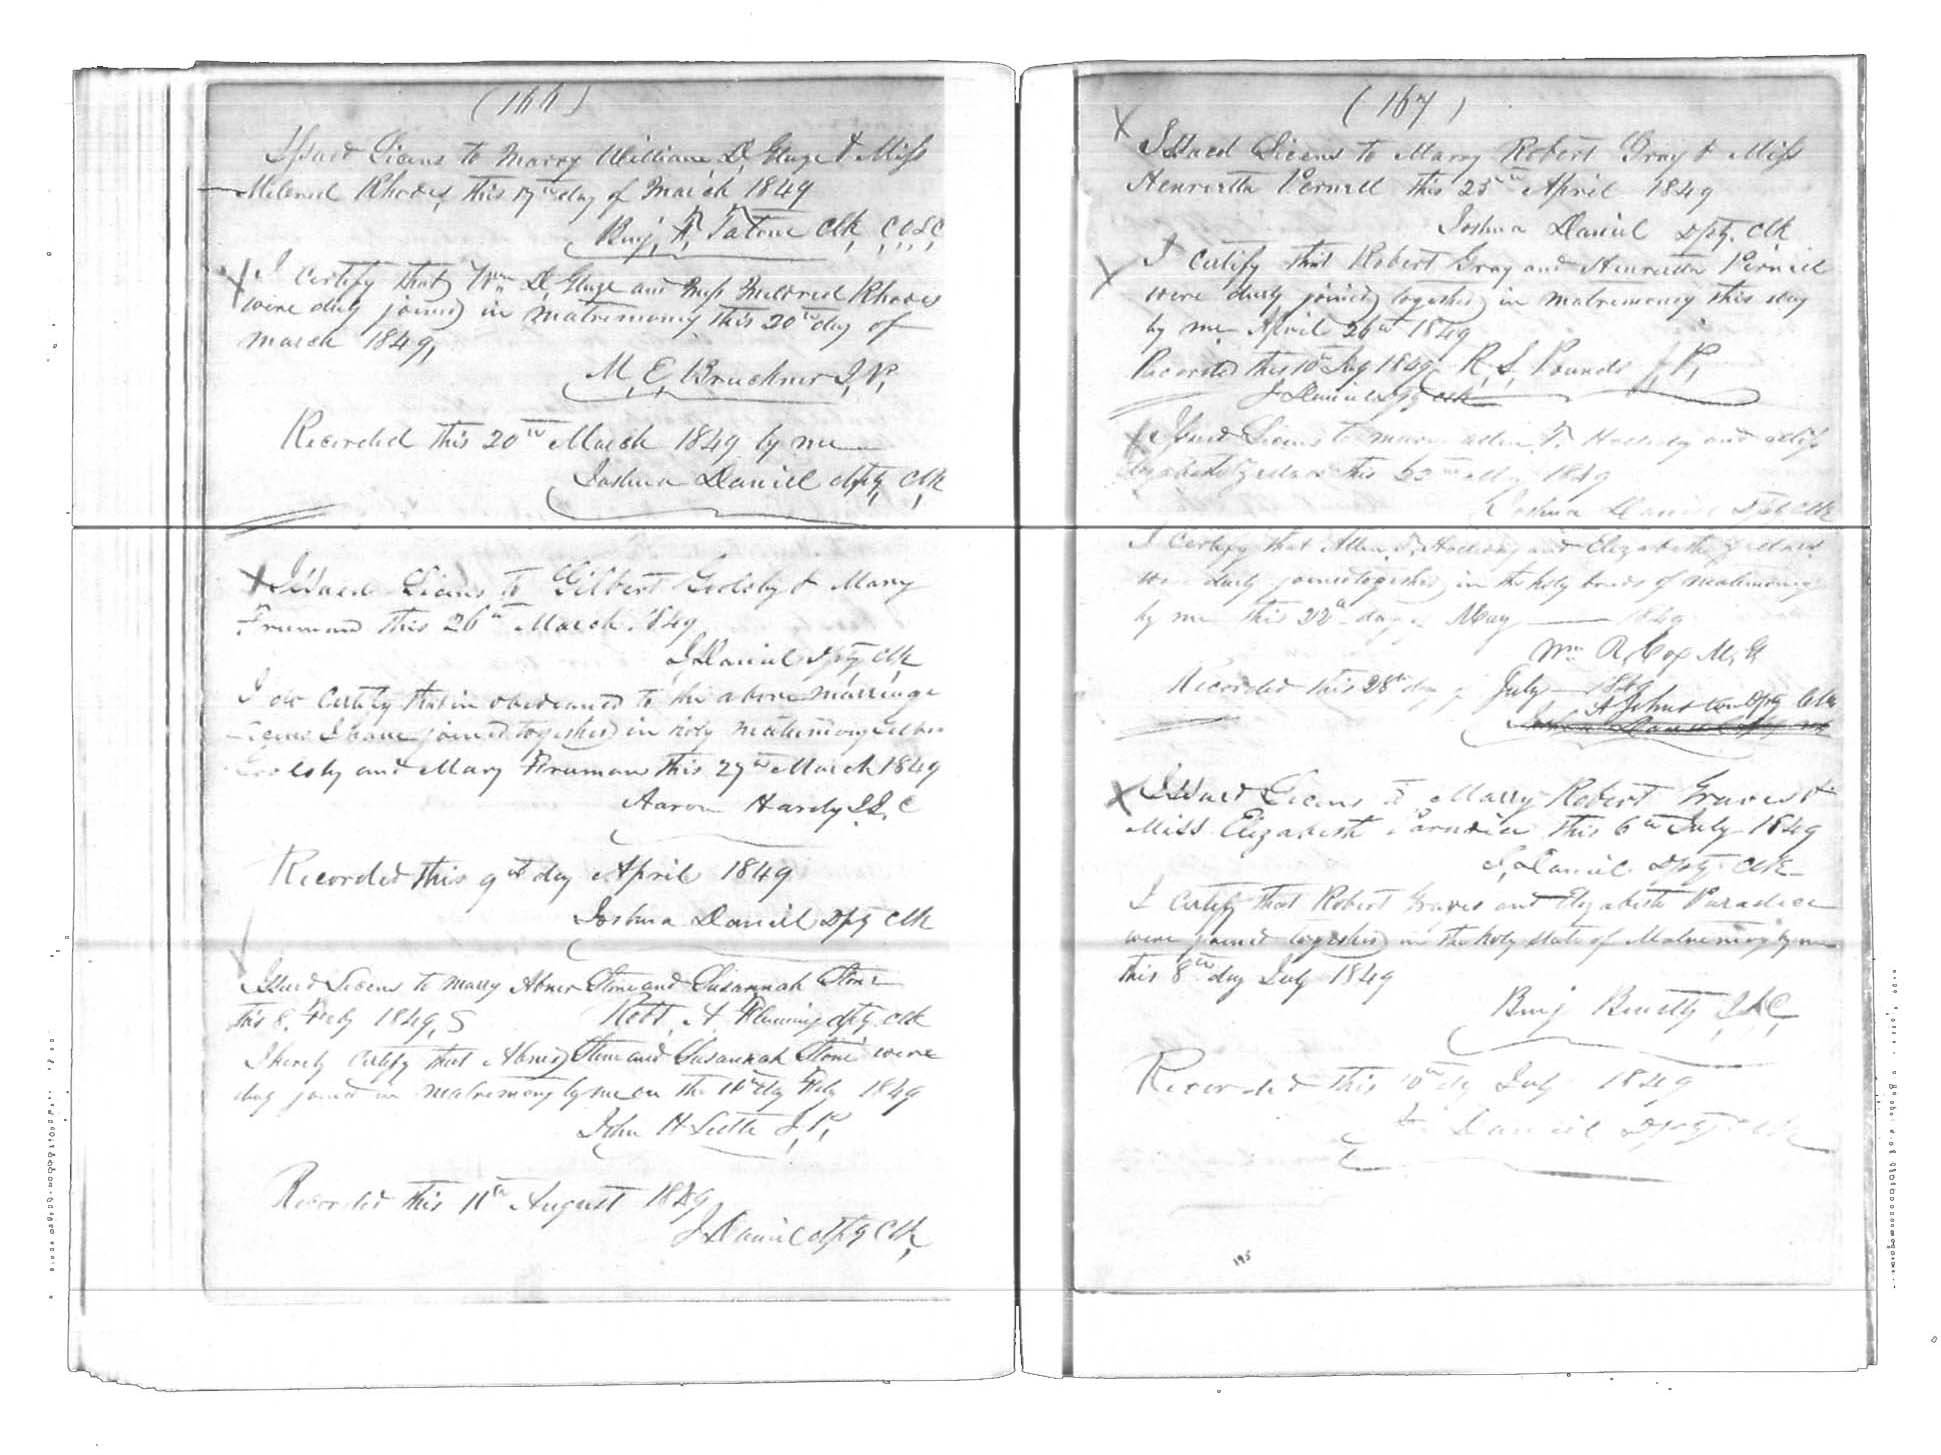 (166)
Issued Licens to Marry William D, Glaze & Miss
Mildred Rhodes, this 17th day of March 1849
Benj, F, Tatom Clk, C,O,&,C,
X I certify that Wm D, Glaze and Miss Mildred Rhodes
were duly joined in matrimony this 20th day of
March 1849,
M, E, Bruckner J, P,
Recorded this 20th March 1849 by me
Joshua Daniel dpty, Clk,
X Issued Licens to Gilbert Golsby & Mary
Freeman this 26th March 1849
J, Daniel Dpty, Clk,
I do certify that in obedience to the above marriage
Licens I have joined together in holy matrimony
and Mary Freeman this 27th March 1849
Aaron Hardy J,I,C
Recorded this 9th day April 1849
Joshua Daniel Dpty Clk
Issued Licens to marry Abner Stone and Susannah Stone
this 8, Feby 1849,
Robt, A Fleming dpty clk
I hereby certify that Abner Stone and Susannah Stone were
duly joined in matrimony by me on the day Feby 1849
John H J, P,
Recorded this 11th August 1849
J, Daniel dpty Clk,
(167)
X Issued Licens to Marry Robert Gray & Miss
Henrietta Pernell this 25th April 1849
Joshua Daniel Dpty. Clk
X I certify that Robert Gray and Henrietta Pernell
were duly joined together in matrimony this day
by me April 26th 1849
Recorded this 10th 1849 R, S, Pounds J, P,
J Daniel Dpty Clk
X Issued Licens to marry Allen and Miss
this 22nd May 1849
Joshua Daniel Dpty Clk
I certify that Allen and Elizabeth
were duly joined together in the holy bonds of matrimony
by me this 22d day of May 1849
Wm R, Cox M, G
Recorded this 28th day of July 1849
A Johnston Dpty Clk
X Issued Licens to Marry Robert Graves &
Miss Elizabeth Paradice this 6th July 1849
J, Daniel Dpty Clk
I certify that Robert Graves and Elizabeth Paradice
were joined together in the holy state of Matrimony by me
this 8th day July 1849
Benj J,I,C,
Recorded this 10th day July 1849
J. Daniel Dpty Clk
195